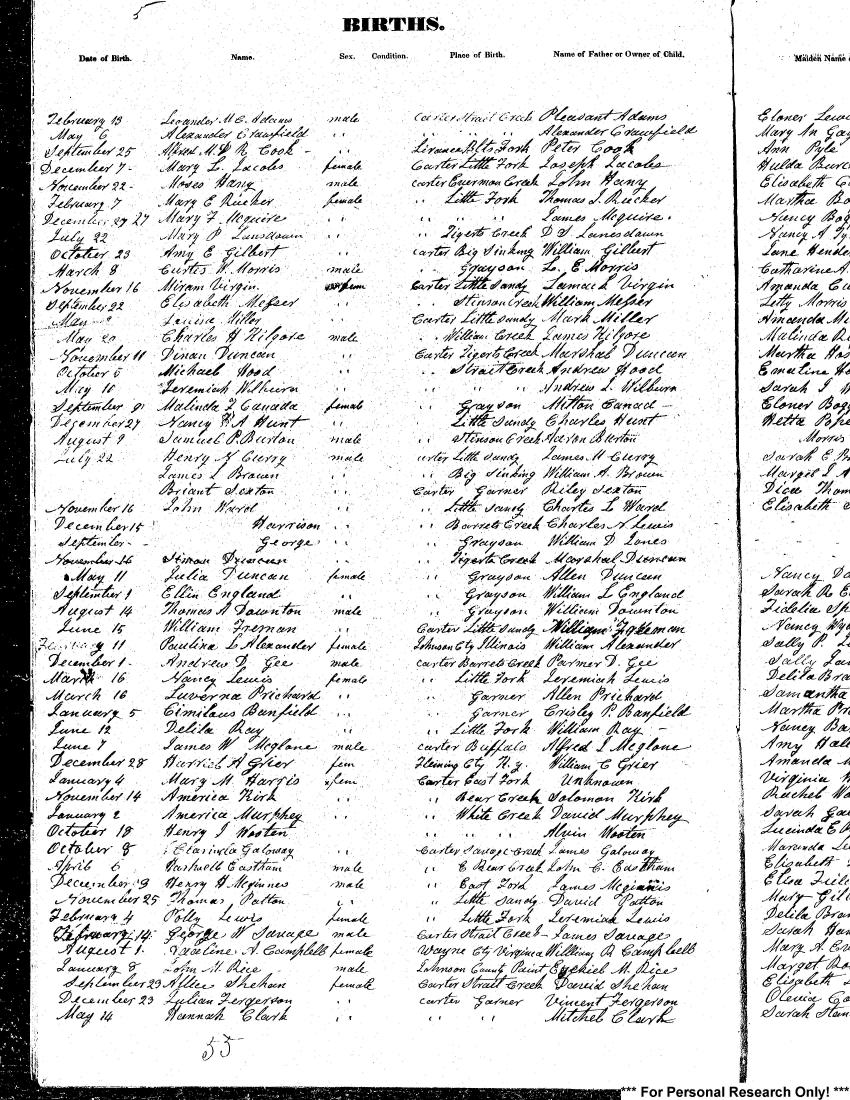 5
BIRTHS.
Date of Birth. Name. Sex. Condition. Place of Birth. Name of Father or Owner of Child. Maiden Name
February 13 Leander M. C. Adams male Carter Strait Creek Pleasant Adams Eloner Lewi
May 6 Alexander Crawfield " " " " Alexander Crawfield Mary An Gay
September 25 R. Cook " " Fork Peter Cook Ann Pyle
December 7 Mary L. Jacobs female Carter Little Fork Joseph Jacobs Hulda Burc
November 22 Moses Hany male carter Everman Creek John Hany Elisabeth C
February 7 Mary E Rucker female " Little Fork Thomas J. Rucker Martha Bo
December 27 Mary F. Mcguire " " " " James Mcguire. Nancy Bog
July 22 Mary P Lansdown " " Tigerts Creek D S Lanesdown Nancy A
October 23 Amy E Gilbert " carter Big Sinking William Gilbert Jane Hender
March 8 Curtis W. Morris male " Grayson L. E Morris Catharine A.
November 16 Miram Virgin fem Carter Little Sandy Lamach Virgin Amanda Cu
September 22 Elisabeth Messer " " Stinson Creek William Messer Letty Morris
Louisa Miller " Carter Little Sandy Mark Miller Amanda Mc
May 20 Charles H Kilgore male " William Creek James Kilgore Malinda R
November 11 Dinan Duncan " Carter Tigerts Creek Marshal Duncan Martha Hos
October 5 Michael Hood " " Strait Creek Andrew Hood Emaline Ho
May 10 Jeremiah Wilburn " " " " Andrew J. Wilburn Sarah J W
September Malinda F Canada female Grayson Milton Canad Eloner Bogg
December 27 Nancy A Hunt " " Little Sandy Charles Hunt Hetta Pope
August 9 Samuel P. Burton male " Stinson Creek Aaron Burton Morris
July 22 Henry N Curry male arter Little Sandy James H Curry Sarah E B
James L Brown " " Big Sinking William A. Brown Margit J. A
Briant Sexton " Carter Garner Riley Sexton Dica Thom
November 16 John Ward " " Little Sandy Charles L Ward Elisabeth S
December 15 Harrison " " Barrets Creek Charles N. Lewis
September George " " Grayson William D Jones
November 16 Duncan " " Tigerts Creek Marshal Duncan
May 11 Julia Duncan female " Grayson Allen Duncan Nancy Da
September 1 Ellin England " " Grayson William L England Sarah Ro E
August 14 Thomas A Downton male " Grayson William Downton Fidelia Sp
June 15 William Freman " Carter Little Sandy William Nancy Wy
11 Paulina L Alexander female Johnson Cty Illinois William Alexander Sally P. L
December 1 Andrew D. Gee male carter Barrets Creek Parmer D. Gee Sally Lan
March 16 Nancy Lewis female " Little Fork Jeremiah Lewis Delila Bra
March 16 Luverna Prichard " " Garner Allen Prichard Samantha
January 5 Cimilous Banfield " " Garner Crisley P. Banfield Martha Pri
June 12 Delila Ray " " Little Fork William Ray Nancy Ba
June 7 James W Mcglone male carter Buffalo Alfred J Mcglone Amy Hall
December 28 Harriet A Grier fem Fleming Cty William C Grier Amanda M
January 4 Mary M Harris fem Carter East Fork Unknown Virginia W
November 14 America Kirk " " Bear Creek Solomon Kirk Rachel Wa
January 2 America Murphey " " White Creek David Murphey Sarah Ga
October 18 Henry J Wooten " " " " Alvin Wooten Lucinda E
October 8 Clarinda Galoway " Carter Savage Creek James Galoway Maranda Lu
April 6 Hartwell Eastham male " E Bear Creek John C. Eastham Elisabeth
December 9 Henry H Mcginnes male " East Ford James Mcginnis Elisa Fiel
November 25 Thomas Patton " " Little Sandy David Patton Mary Gil
February 4 Polly Lewis female " Little Fork Jeremiah Lewis Delila Bran
February 14 George W Savage male Carter Strait Creek James Savage Sarah Ham
August 1 A. Campbell female Wayne Cty Virginia William R Campbell Mary A. Cr
January 8 John M. Rice male Johnson County Paint Ezekiel M. Rice Margt Ro
September 23 Allice Shehan female Carter Strait Creek David Shehan Elisabeth
December 23 Julian Fergerson " carter Garner Vincent Fergerson Olevia Co
May 14 Hannah Clark " " " Mitchel Clark Sarah Stam
55
*** For Personal Research Only! ***